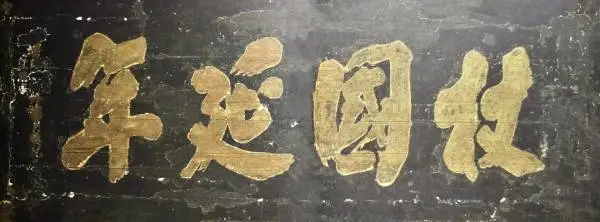 杖國延年